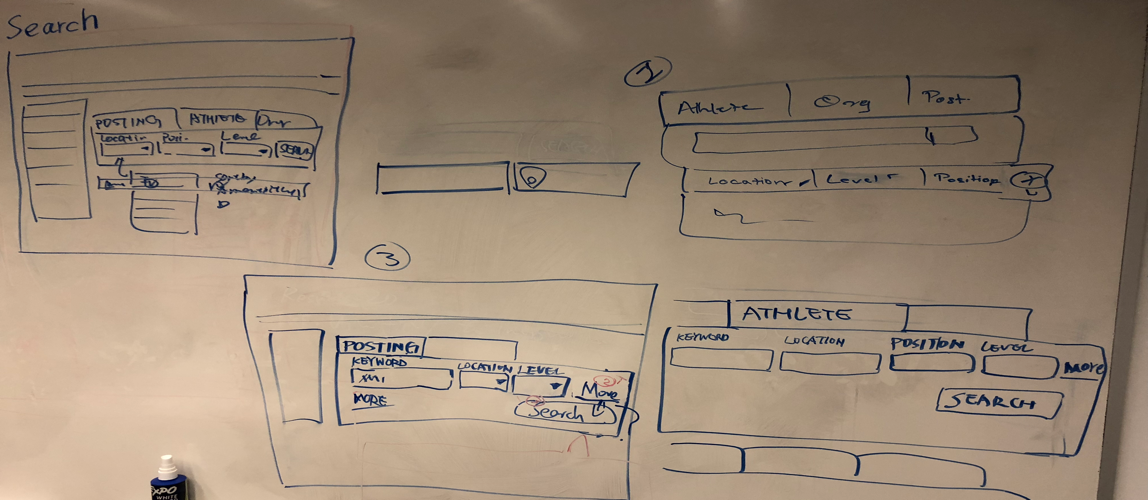 Search
POSTING ATHLETE Org
Location Posi. Level
SEARCH
2
Athlete Org Post.
Location Level Position
3
POSTING
KEYWORD LOCATION LEVEL
More
MORE
Search
ATHLETE
KEYWORD LOCATION POSITION LEVEL
More
SEARCH
EXPO
WHITE